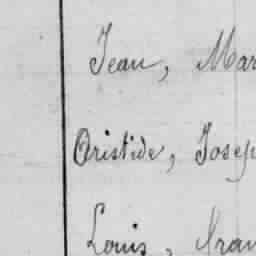 Jean, Mar
Aristide, Josep
Louis, Fran